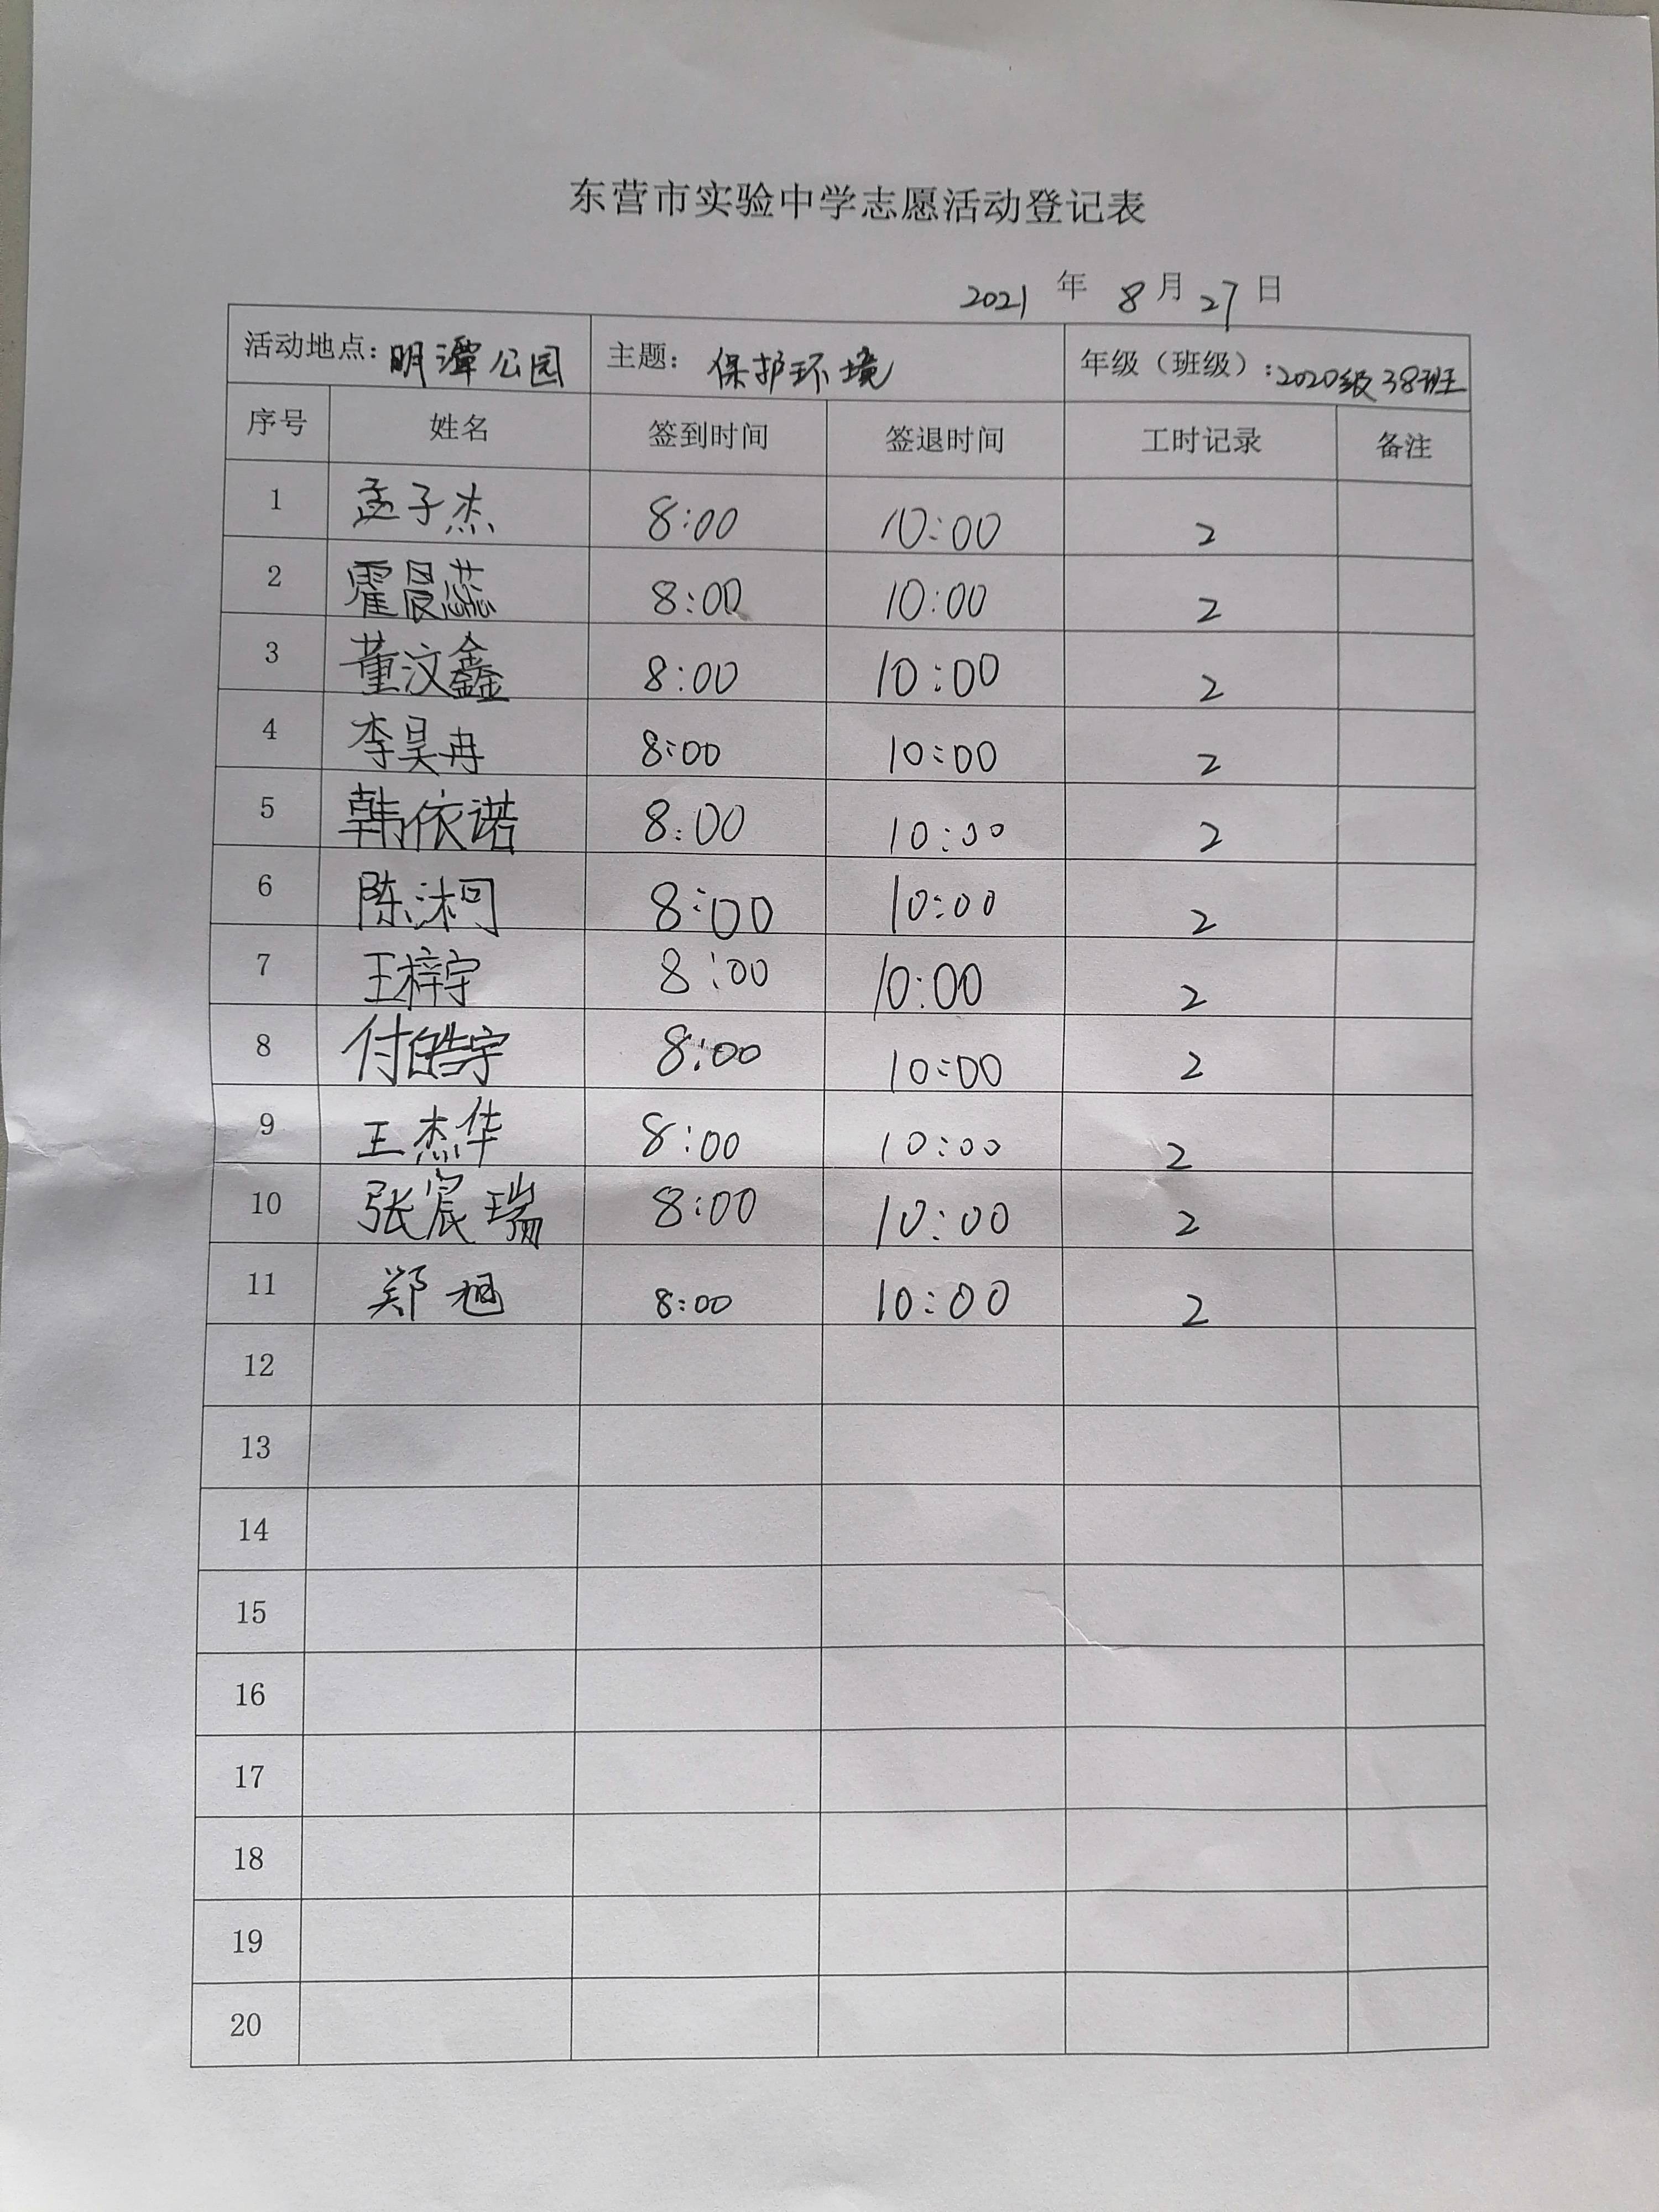 东营市实验中学志愿活动登记表
2021 年 8 月 27 日
活动地点：明潭公园 主题： 保护环境 年级（班级）：2020级38班
序号 姓名 签到时间 签退时间 工时记录 备注
1 孟子杰 8:00 10:00 2
2 霍晨蕊 8:00 10:00 2
3 董汶鑫 8:00 10:00 2
4 李昊冉 8:00 10:00 2
5 韩依诺 8:00 10:00 2
6 陈沭可 8:00 10:00 2
7 王梓宇 8:00 10:00 2
8 付皓宇 8:00 10:00 2
9 王杰华 8:00 10:00 2
10 张宸瑞 8:00 10:00 2
11 郑旭 8:00 10:00 2
12
13
14
15
16
17
18
19
20